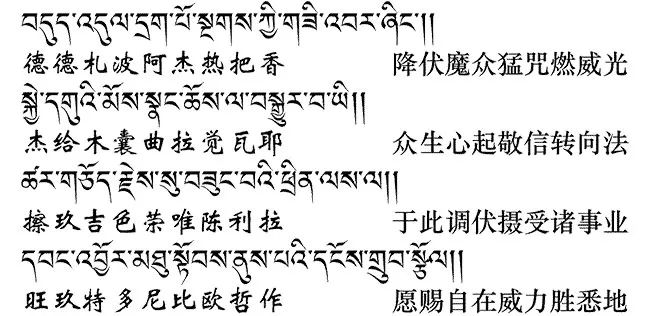 བདུད་འདུལ་དྲག་པོ་སྔགས་ཀྱི་གཟི་འབར་ཞིང་།།
德德札波阿杰热把香 降伏魔众猛咒燃威光
སྐྱེ་དགུའི་མོས་སྣང་ཆོས་ལ་བསྒྱུར་བ་ཡི།།
杰给木囊曲拉觉瓦耶 众生心起敬信转向法
ཚར་གཅོད་རྗེས་སུ་བཟུང་བའི་ཕྲིན་ལས་ལ།།
擦玖吉色荣唯陈利拉 于此调伏摄受诸事业
དབང་འབྱོར་མཐུ་སྟོབས་ནུས་པའི་དངོས་གྲུབ་སྩོལ།།
旺玖特多尼比欧哲作 愿赐自在威力胜悉地